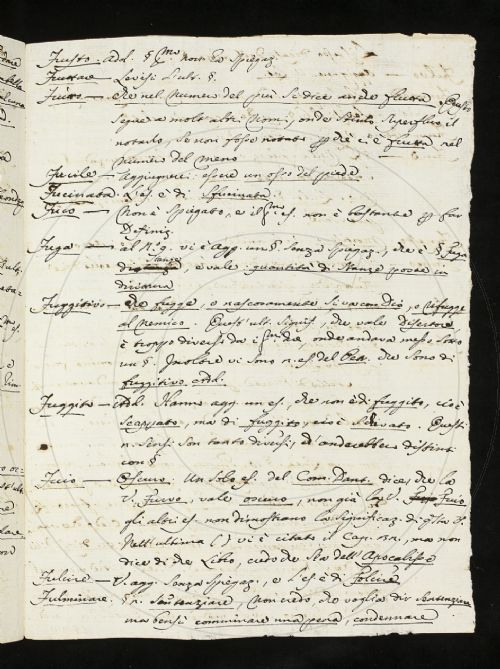 Frusto — add. § non ha Spiegaz.
Fruttare — Levisi l'ult. §.
Frutto — che nel numero del più si dice anche frutta, questo
segue a molti altri Nomi, onde superfluo il
notarlo, se non fosse notato che c'è frutta nel
numero del meno
Fucile — Aggiungerei: essere un osso del piede
Fucinata — L'es. è di Sfucinata
Fuco — Non è Spiegato, e il es. non è bastante per far
Definiz.
Fuga — al N. 9. vi è Agg. un § senza Spiegaz., che è § Fuga
di Stanze, e vale quantità di Stanze poste in
dirittura
Fuggitivo — che fugge, o nascosamente si va con Dio, o rifugge
al nemico. Quest'ult. Signif., che vale Desertore,
è troppo diverso da i primi due onde andava messo sotto
un §. Inoltre vi sono n. es. del che sono di
fuggitivo add.
Fuggito — Hanno agg. un es., che non è di fuggito, cioè
scappato, ma di fuggito, cioè Questi
n. Sensi son tanto diversi, ed anderebber distinti
con §
Fuio — Oscuro. Un solo es. del Com. Dant. dice, che la
V. Furvo, vale oscuro, non già la V. Fuio
gli altri es. non dimostrano la Significaz. di
Nell'ultima ( ) vi è citato il Cap. ma non
dice di che Libro, credo che sia dell'Apocalisse
Fulcire — V. agg. senza Spiegaz., e l'es. è di Folcire
Fulminare. § n. Sentenziare, Non credo, che voglia dir sentenziare
ma bensì comminare una pena, condennare